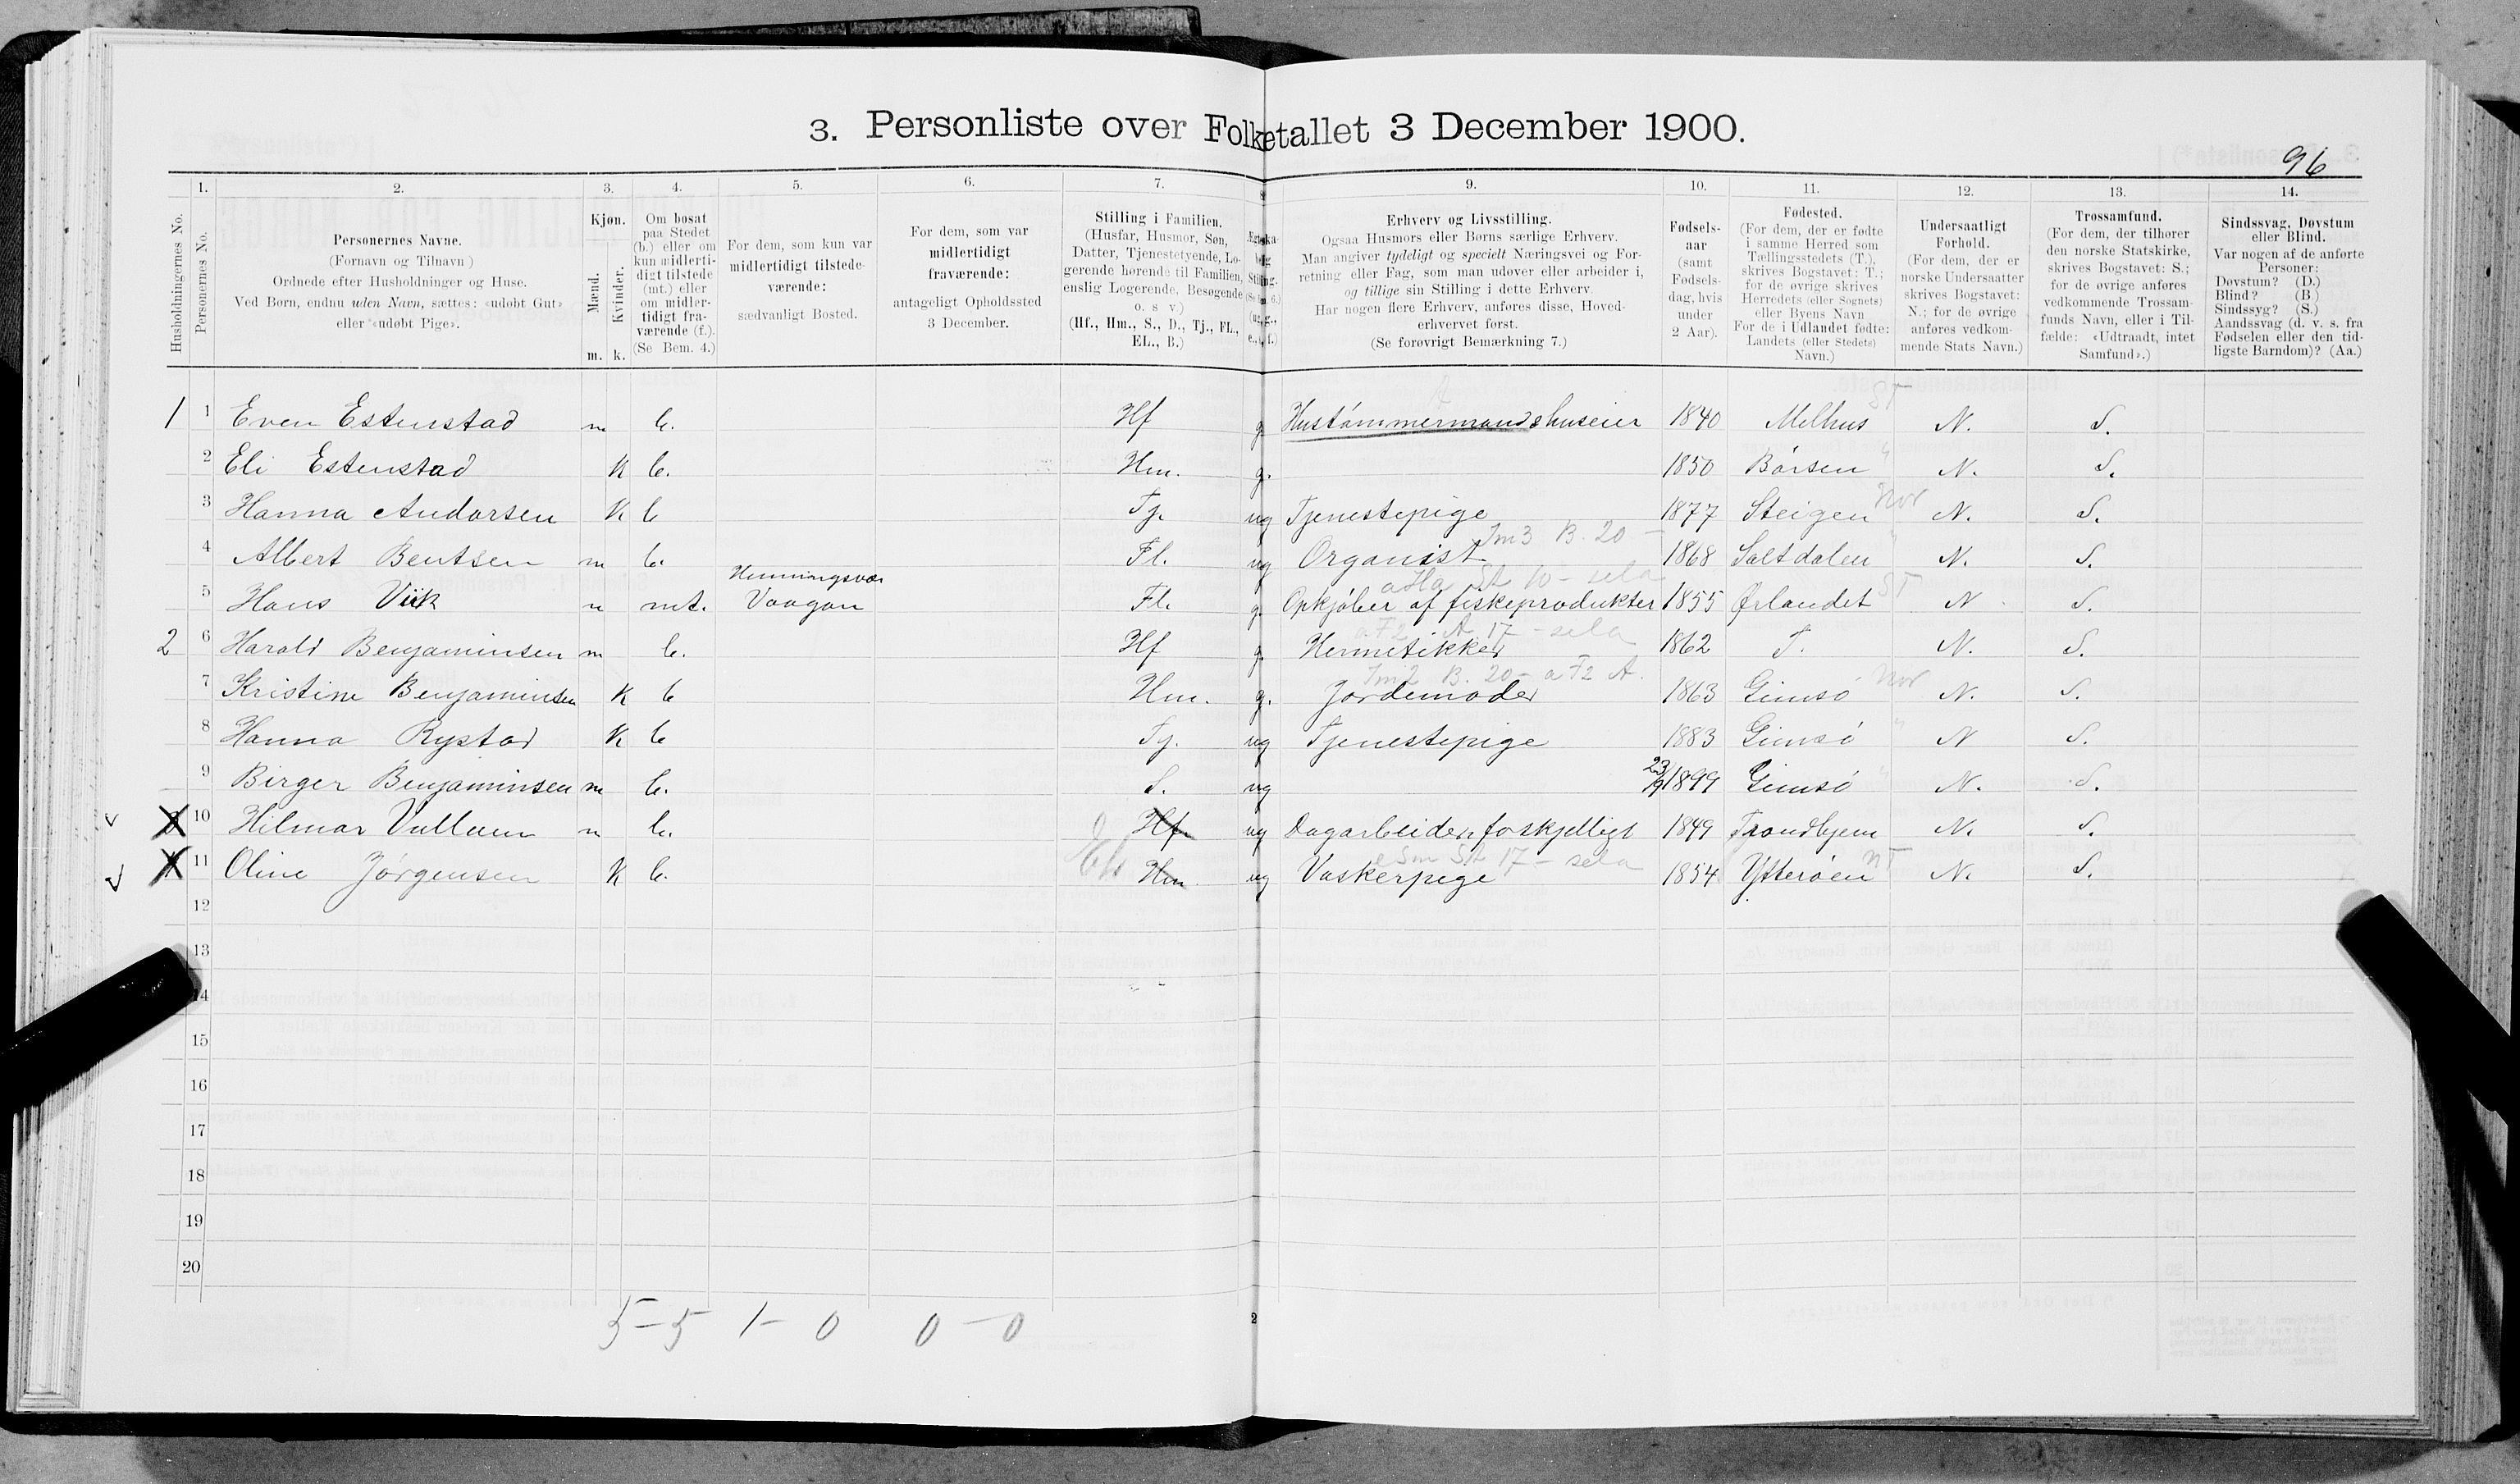 3. Personliste over Folketallet 3 December 1900.
96
1. 2. 3. 4. 5. 6. 7. 9. 10. 11. 12. 13. 14.
Husholdningernes No.
Personernes No.
Personernes Navne.
(Fornavn og Tilnavn)
Ordnede efter Husholdninger og Huse.
Ved Børn, endnu uden Navn, sættes: «udøbt Gut»
eller «udøbt Pige».
Kjøn.
Mænd.
Kvinder.
m. k.
Om bosat
paa Stedet
(b.) eller om
kun midlerti-
digt tilstede
(mt.) eller
om midler-
tidigt fra-
værende (f.).
(Se Bem. 4.)
For dem, som kun var
midlertidigt tilstede-
værende:
sædvanligt Bosted.
For dem, som var
midlertidigt
fraværende:
antageligt Opholdssted
3 December.
Stilling i Familien.
(Husfar, Husmor, Søn,
Datter, Tjenestetyende, Lo-
gerende hørende til Familien,
enslig Logerende, Besøgende
o. s v.)
(Hf., Hm., S., D., Tj., FL.,
EL., B.)
Erhverv og Livsstilling.
Ogsaa Husmors eller Børns særlige Erhverv.
Man angiver tydeligt og specielt Næringsvei og For-
retning eller Fag, som man udøver eller arbeider i,
og tillige sin Stilling i dette Erhverv.
Har nogen flere Erhverv, anføres disse, Hoved-
erhvervet først.
(Se forøvrigt Bemærkning 7.)
Fødsels-
aar
(samt
Fødsels-
dag, hvis
under
2 Aar).
Fødested.
(For dem, der er fødte
i samme Herred som
Tællingsstedets (T.),
skrives Bogstavet: T.;
for de øvrige skrives
Herredets (eller Sognets)
eller Byens Navn
For de i Udlandet fødte:
Landets (eller Stedets)
Navn.)
Undersaatligt
Forhold.
(For dem, der er
norske Undersaatter
skrives Bogstavet:
N.; for de øvrige
anføres vedkom-
mende Stats Navn.)
Trossamfund.
(For dem, der tilhører
den norske Statskirke,
skrives Bogstavet: S.;
for de øvrige anføres
vedkommende Trossam-
funds Navn, eller i Til-
fælde: «Udtraadt, intet
Samfund».)
Sindssvag, Døvstum
eller Blind.
Var nogen af de anførte
Personer:
Døvstum? (D.)
Blind? (B.)
Sindssyg? (S.)
Aandssvag (d. v. s. fra
Fødselen eller den tid-
ligste Barndom)? (Aa.)
1 1 Even Estenstad m b. Hf g. Hustømmermand & huseier 1840 Melhus ST N. S.
2 Eli Estenstad K b. Hm. g. 1850 Børsen " N. S.
3 Hanna Andorsen K b Tj. ug Tjenestepige 1877 Steigen Nor N. S.
Im3 B. 20 -
4 Albert Bentsen m b. Fl. ug Organist 1868 Saltdalen " N. S.
Henningsvær
5 Hans Viik m mt. Vaagan Fl. g. Opkjøber af fiskeprodukter 1855 Ørlandet ST N S.
2 6 Harald Benjaminsen m b. Hf g. Hermetikker 1862 T. N. S.
Im2 B. 20 - a F2 A.
7 Kristine Benjaminsen K b Hm. g. Jordemoder 1863 Gimsø Nor N. S.
8 Hanna Rystad K b Tj. ug Tjenestepige 1883 Gimsø " N S.
9 Birger Benjaminsen m b. S. ug 23/9 1899 Gimsø " N. S.
10 Hilmar Vullum m b. Hf. ug Dagarbeider, forskjelligt 1849 Trondhjem N. S.
11 Oline Jørgensen K b. El Hm. ug Vaskerpige 1854 Ytterøen NT N. S.
12
13
14
15
16
17
18
19
20
5 - 5 1 - 0 0 - 0
2